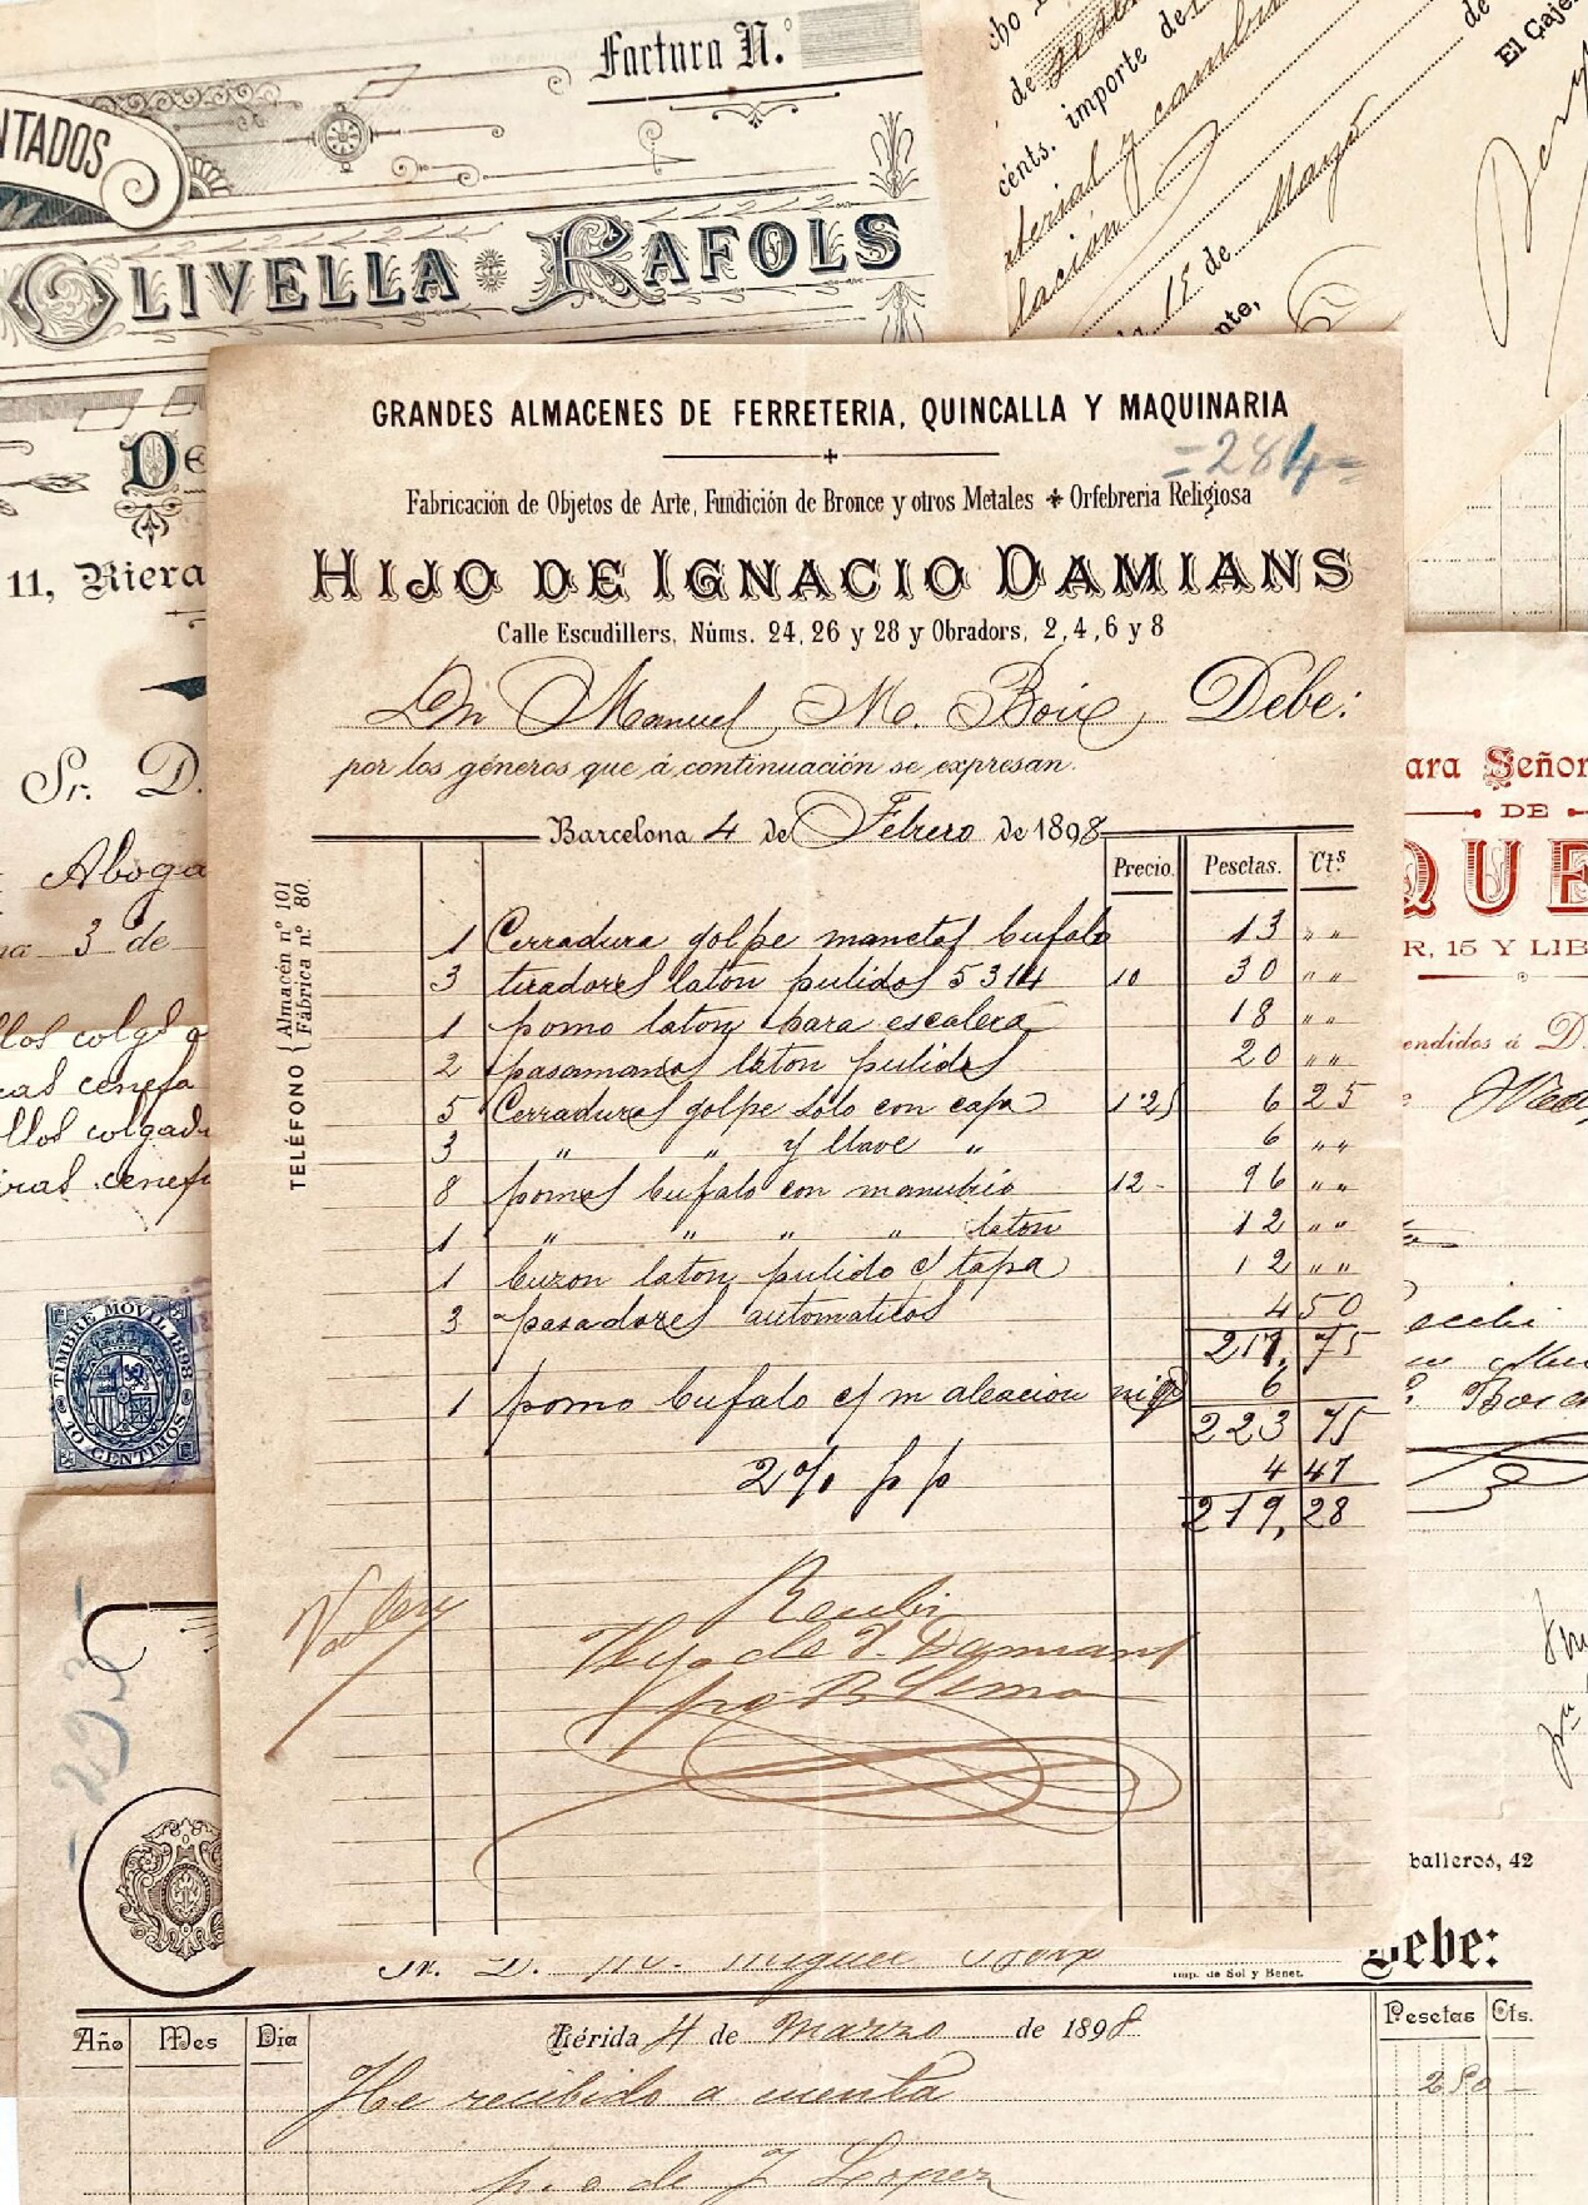 Factura N.º
NTADOS
OLIVELLA RAFOLS
De
11, Riera
Sr. D.
Aboga
3 de
llos colgs
cas cenefa
llos colgad
iras cenef
TIMBRE MÓVIL 1898
10 CENTIMOS
cho
de
importe de
cénts.
terial y
lacion
15 de Marzo de
nte,
El Caje
GRANDES ALMACENES DE FERRETERIA, QUINCALLA Y MAQUINARIA
=284=
Fabricación de Objetos de Arte, Fundición de Bronce y otros Metales ✦ Orfebreria Religiosa
HIJO DE IGNACIO DAMIANS
Calle Escudillers, Núms. 24, 26 y 28 y Obradors, 2, 4, 6 y 8
Dn Manuel M. Boix, Debe:
por los géneros que á continuación se expresan.
Barcelona 4 de Febrero de 1898
Precio. Pesetas. Cts.
TELÉFONO { Almacén nº 101
Fábrica nº. 80.
1 Cerradura golpe manetas bufalo 13 " "
3 tiradores laton pulidos 5314 10 30 " "
1 pomo laton para escalera 18 " "
2 pasamanos laton pulidos 20 " "
5 Cerraduras golpe solo con capa 1'25 6 25
3 " " y llave " 6 " "
8 pomos bufalo con manubrio 12- 96 " "
1 " " " " laton 12 " "
1 buzon laton pulido c/ tapa 12 " "
3 pasadores automaticos 4 50
217,75
1 pomo bufalo c/ m aleacion 6
223 75
2% p p 4 47
219,28
Recibi
Hijo de I. Damians
ara Señor
DE
QUE
R, 15 Y LIB
endidos á D.
balleros, 42
Debe:
Sr. D. Miguel Boix
Imp. de Sol y Benet.
Año Mes Dia Lérida 4 de Marzo de 1898 Pesetas Cts.
He recibido a cuenta 250 -
p. o de J Llopez